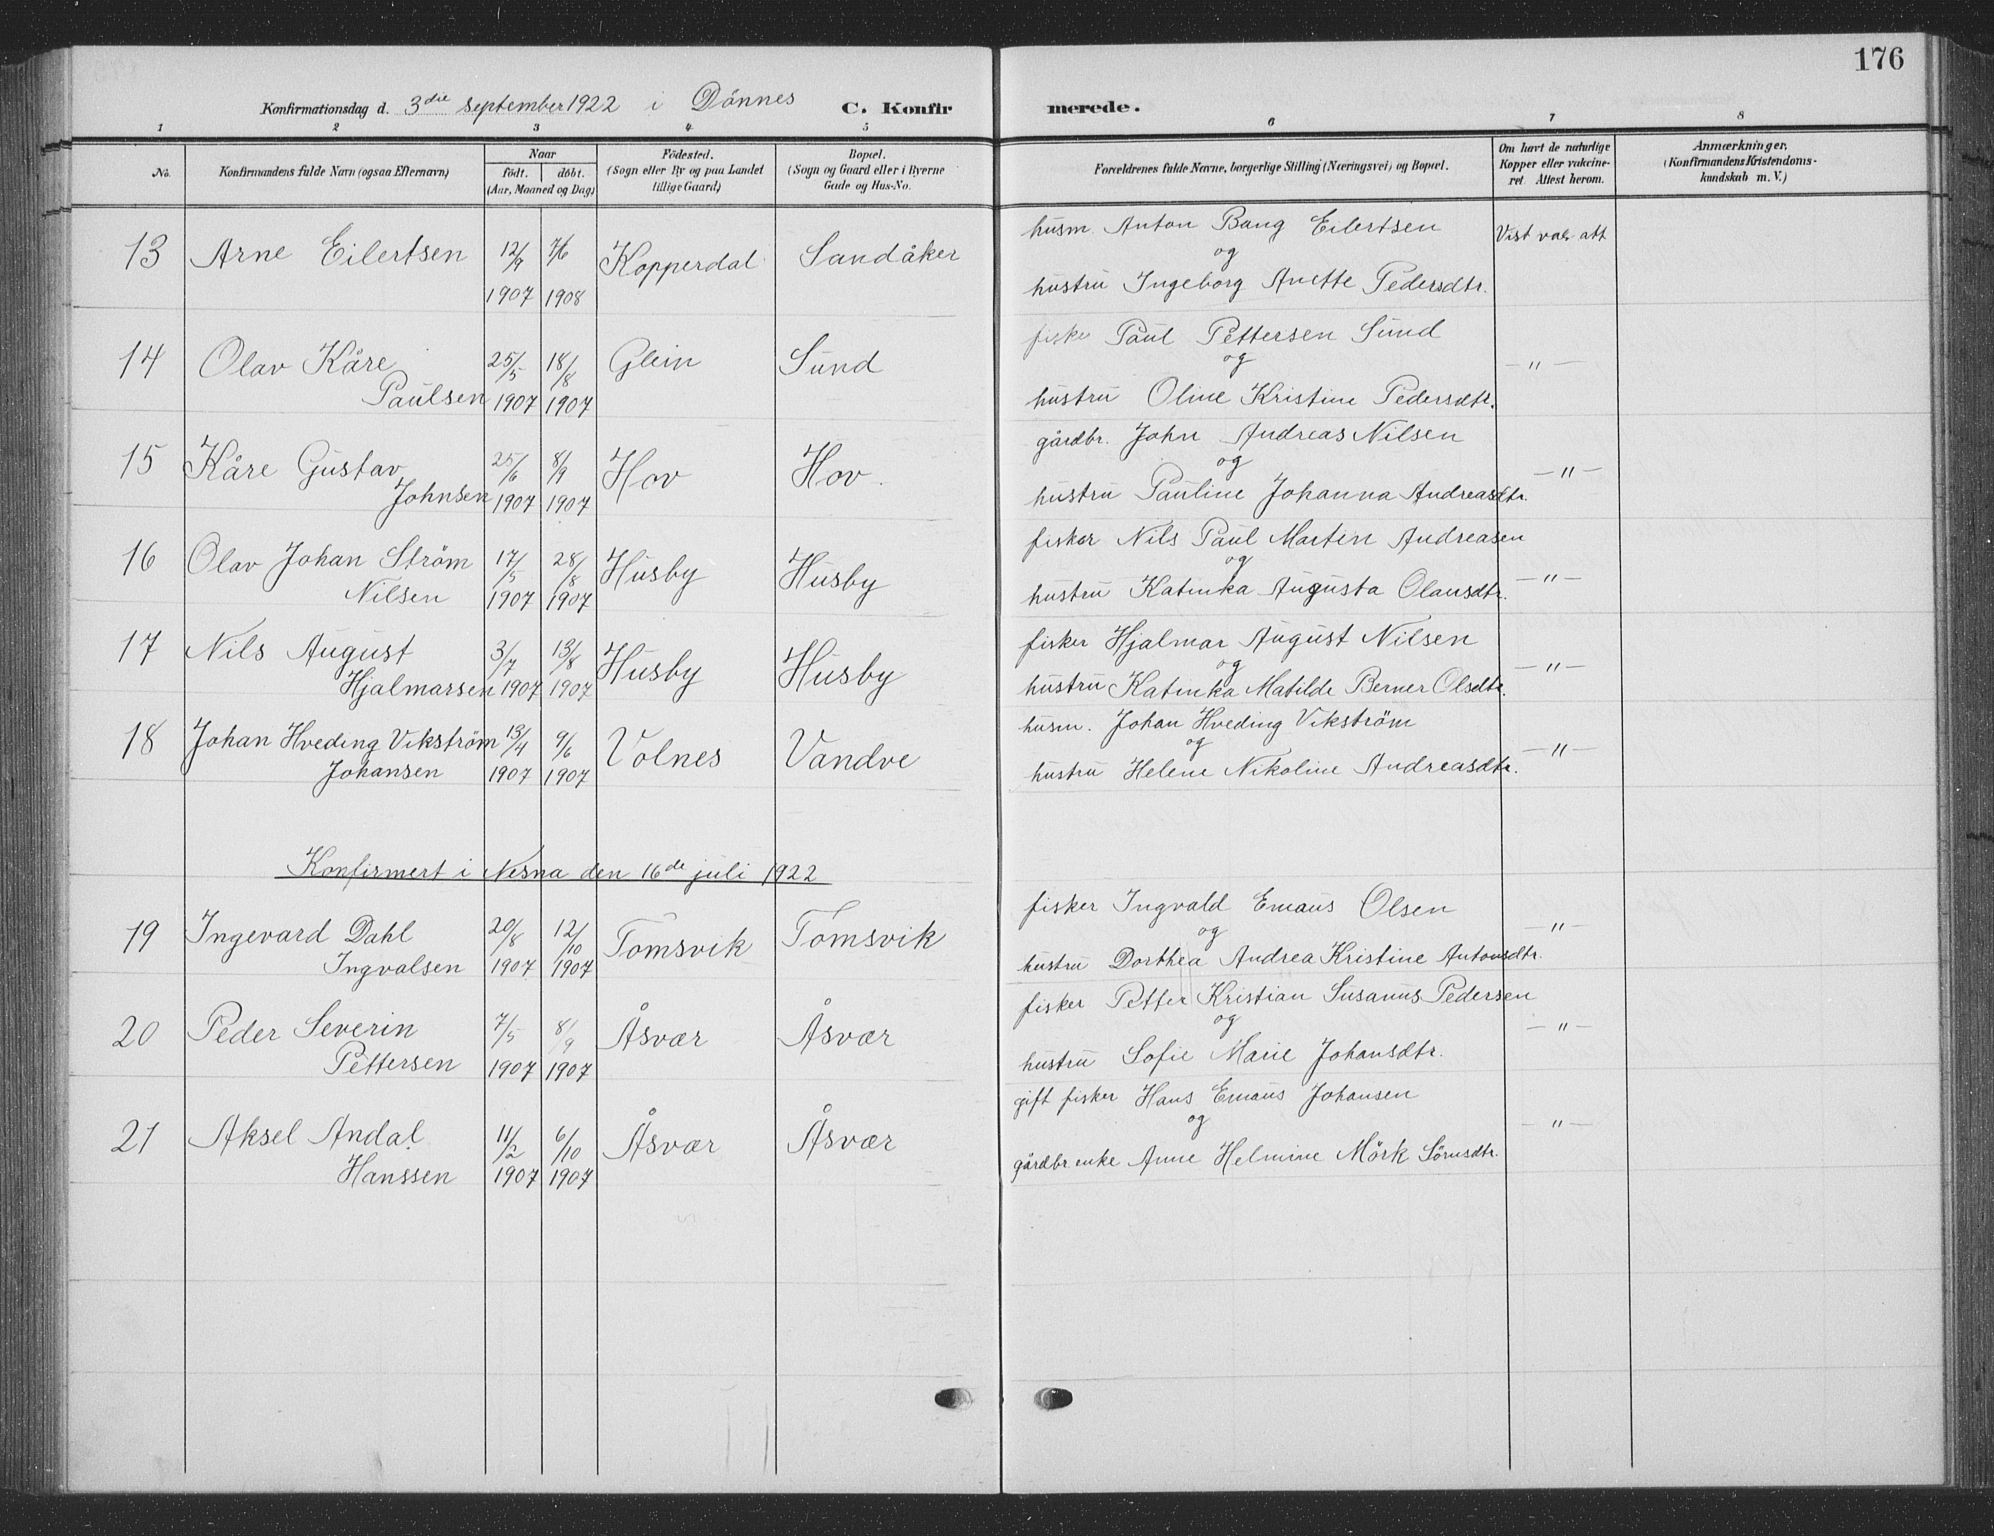 176
Konfirmationsdag d. 3die september 1922 i Dönnes C. Konfirmerede.
1 2 3 4 5 6 7 8
No. Konfirmandens fulde Navn (ogsaa Efternavn) Naar födt. döbt. (Aar, Maaned og Dag) Födested. (Sogn eller By og paa Landet tillige Gaard) Bopæl. (Sogn og Gaard eller i Byerne Gade og Hus-No. Forældrenes fulde Navne, borgerlige Stilling (Næringsvei) og Bopæl. Om havt de naturlige Kopper eller vakcineret. Attest herom. Anmærkninger. (Konfirmandens Kristendomskundskab m. V.)
husm. Anton Bang Eilertsen
13 Arne Eilertsen 12/9 1907 7/6 1908 Kopperdal Sandåker og Vist vac. att
hustru Ingeborg Anette Pedersdtr.
fisker Paul Pettersen Sund
14 Olav Kåre 25/5 18/8 Glein Sund og — " —
Paulsen 1907 1907 hustru Oline Kristine Pedersdtr.
gårdbr. John Andreas Nilsen
15 Kåre Gustav 25/6 8/9 Hov Hov. og — " —
Johnsen 1907 1907 hustru Pauline Johanna Andreasdtr.
fisker Nils Paul Marten Andreasen
16 Olav Johan Ström 17/5 28/8 Husby Husby og — " —
Nilsen 1907 1907 hustru Katinka Augusta Olausdtr.
17 Nils August 3/7 13/8 Husby Husby fisker Hjalmar August Nilsen
og — " —
Hjalmarsen 1907 1907 hustru Katinka Matilde Berner Olsdtr.
18 Johan Hveding Vikström 13/4 9/6 Volnes Vandve husm. Johan Hveding Vikström
og — " —
Johansen 1907 1907 hustru Helene Nikoline Andreasdtr.
Konfirmert i Nesna den 16de juli 1922
fisker Ingvald Emaus Olsen
19 Ingevard Dahl 20/8 12/10 Tomsvik Tomsvik og — " —
Ingvalsen 1907 1907 hustru Dorthea Andrea Kristine Antonsdtr.
fisker Petter Kristian Susanus Pedersen
20 Peder Severin 7/5 8/9 Åsvær Åsvær og — " —
Pettersen 1907 1907 hustru Sofie Marie Johansdtr.
gift fisker Hans Emaus Johansen
21 Aksel Andal 11/2 6/10 Åsvær Åsvær og — " —
Hanssen 1907 1907 gårdbr enke Anne Helmine Mörk Sörensdtr.